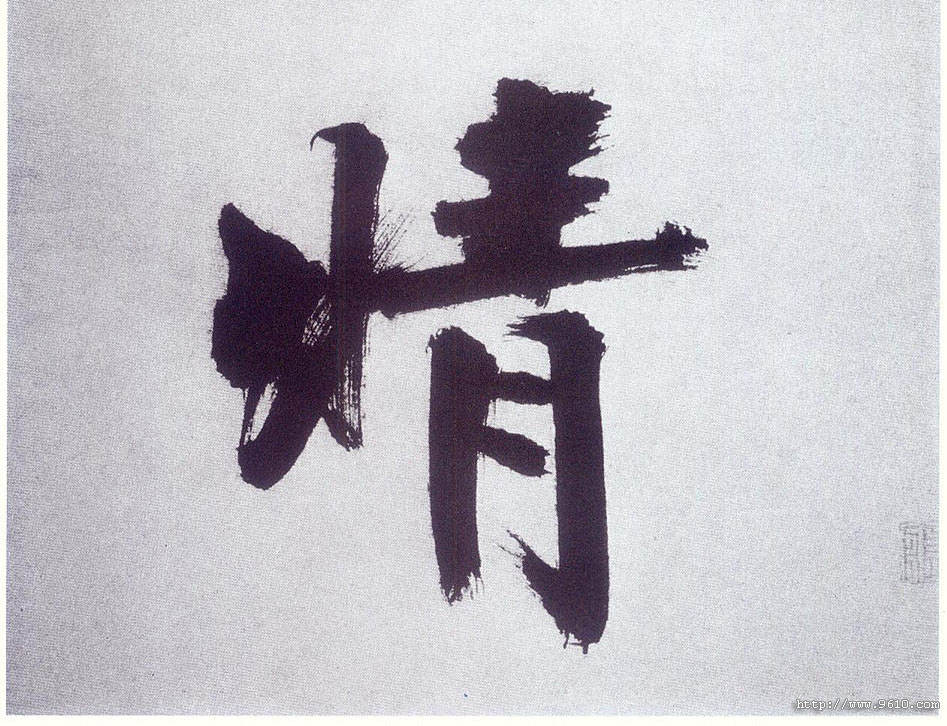 精
http://www.9610.com